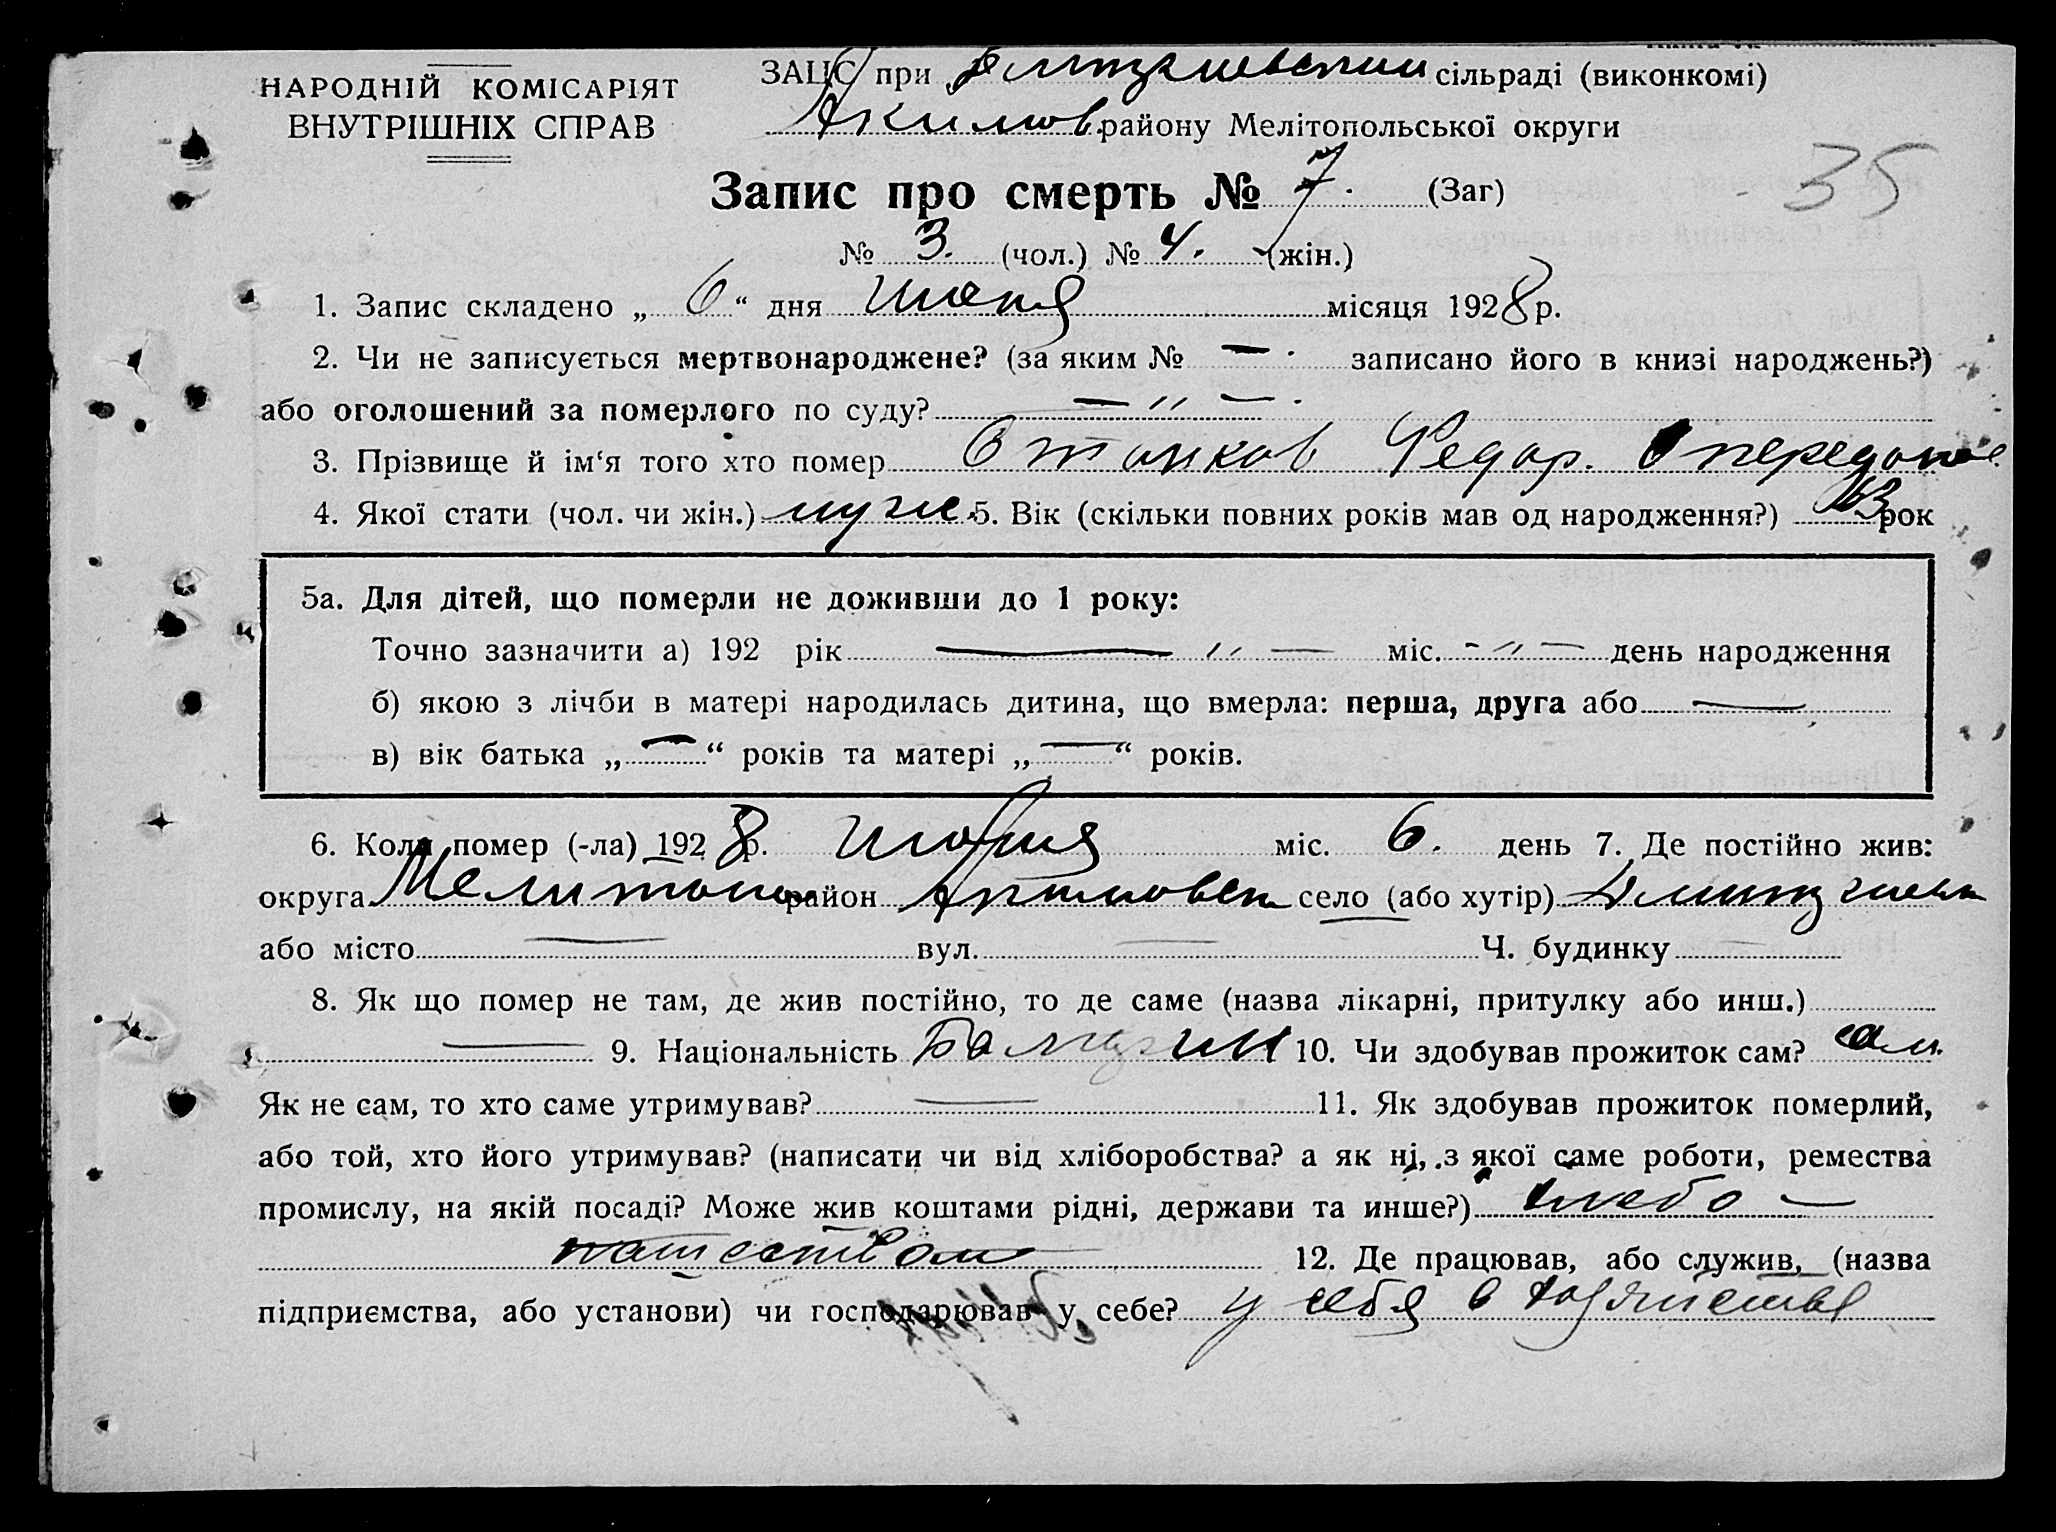 НАРОДНІЙ КОМІСАРІЯТ
ВНУТРІШНІХ СПРАВ
ЗАЦС при сільраді (виконкомі)
Акимов. району Мелітопольської округи
35
Запис про смерть № 7. (Заг)
№ 3. (чол.) № 4. (жін.)
1. Запис складено „ 6 “ дня июня місяця 1928 р.
2. Чи не записується мертвонароджене? (за яким № — записано його в книзі народжень?)
або оголошений за померлого по суду? — „ —
3. Прізвище й ім‘я того хто помер Федор.
4. Якої стати (чол. чи жін.) муж. 5. Вік (скільки повних років мав од народження?) рок
5а. Для дітей, що померли не доживши до 1 року:
Точно зазначити а) 192 рік — „ — міс. - „ - день народження
б) якою з лічби в матері народилась дитина, що вмерла: перша, друга або —
в) вік батька „ — “ років та матері „ — “ років.
6. Коли помер (-ла) 1928 р. міс. 6. день 7. Де постійно жив:
округа Мелитопол район Акимовск село (або хутір)
або місто — вул. — Ч. будинку —
8. Як що помер не там, де жив постійно, то де саме (назва лікарні, притулку або инш.)
— 9. Національність 10. Чи здобував прожиток сам? сам.
Як не сам, то хто саме утримував? — 11. Як здобував прожиток померлий,
або той, хто його утримував? (написати чи від хліборобства? а як ні, з якої саме роботи, ремества
промислу, на якій посаді? Може жив коштами рідні, держави та инше?) хлебо —
пашеством 12. Де працював, або служив, (назва
підприємства, або установи) чи господарював у себе? у себя в хозяйстве